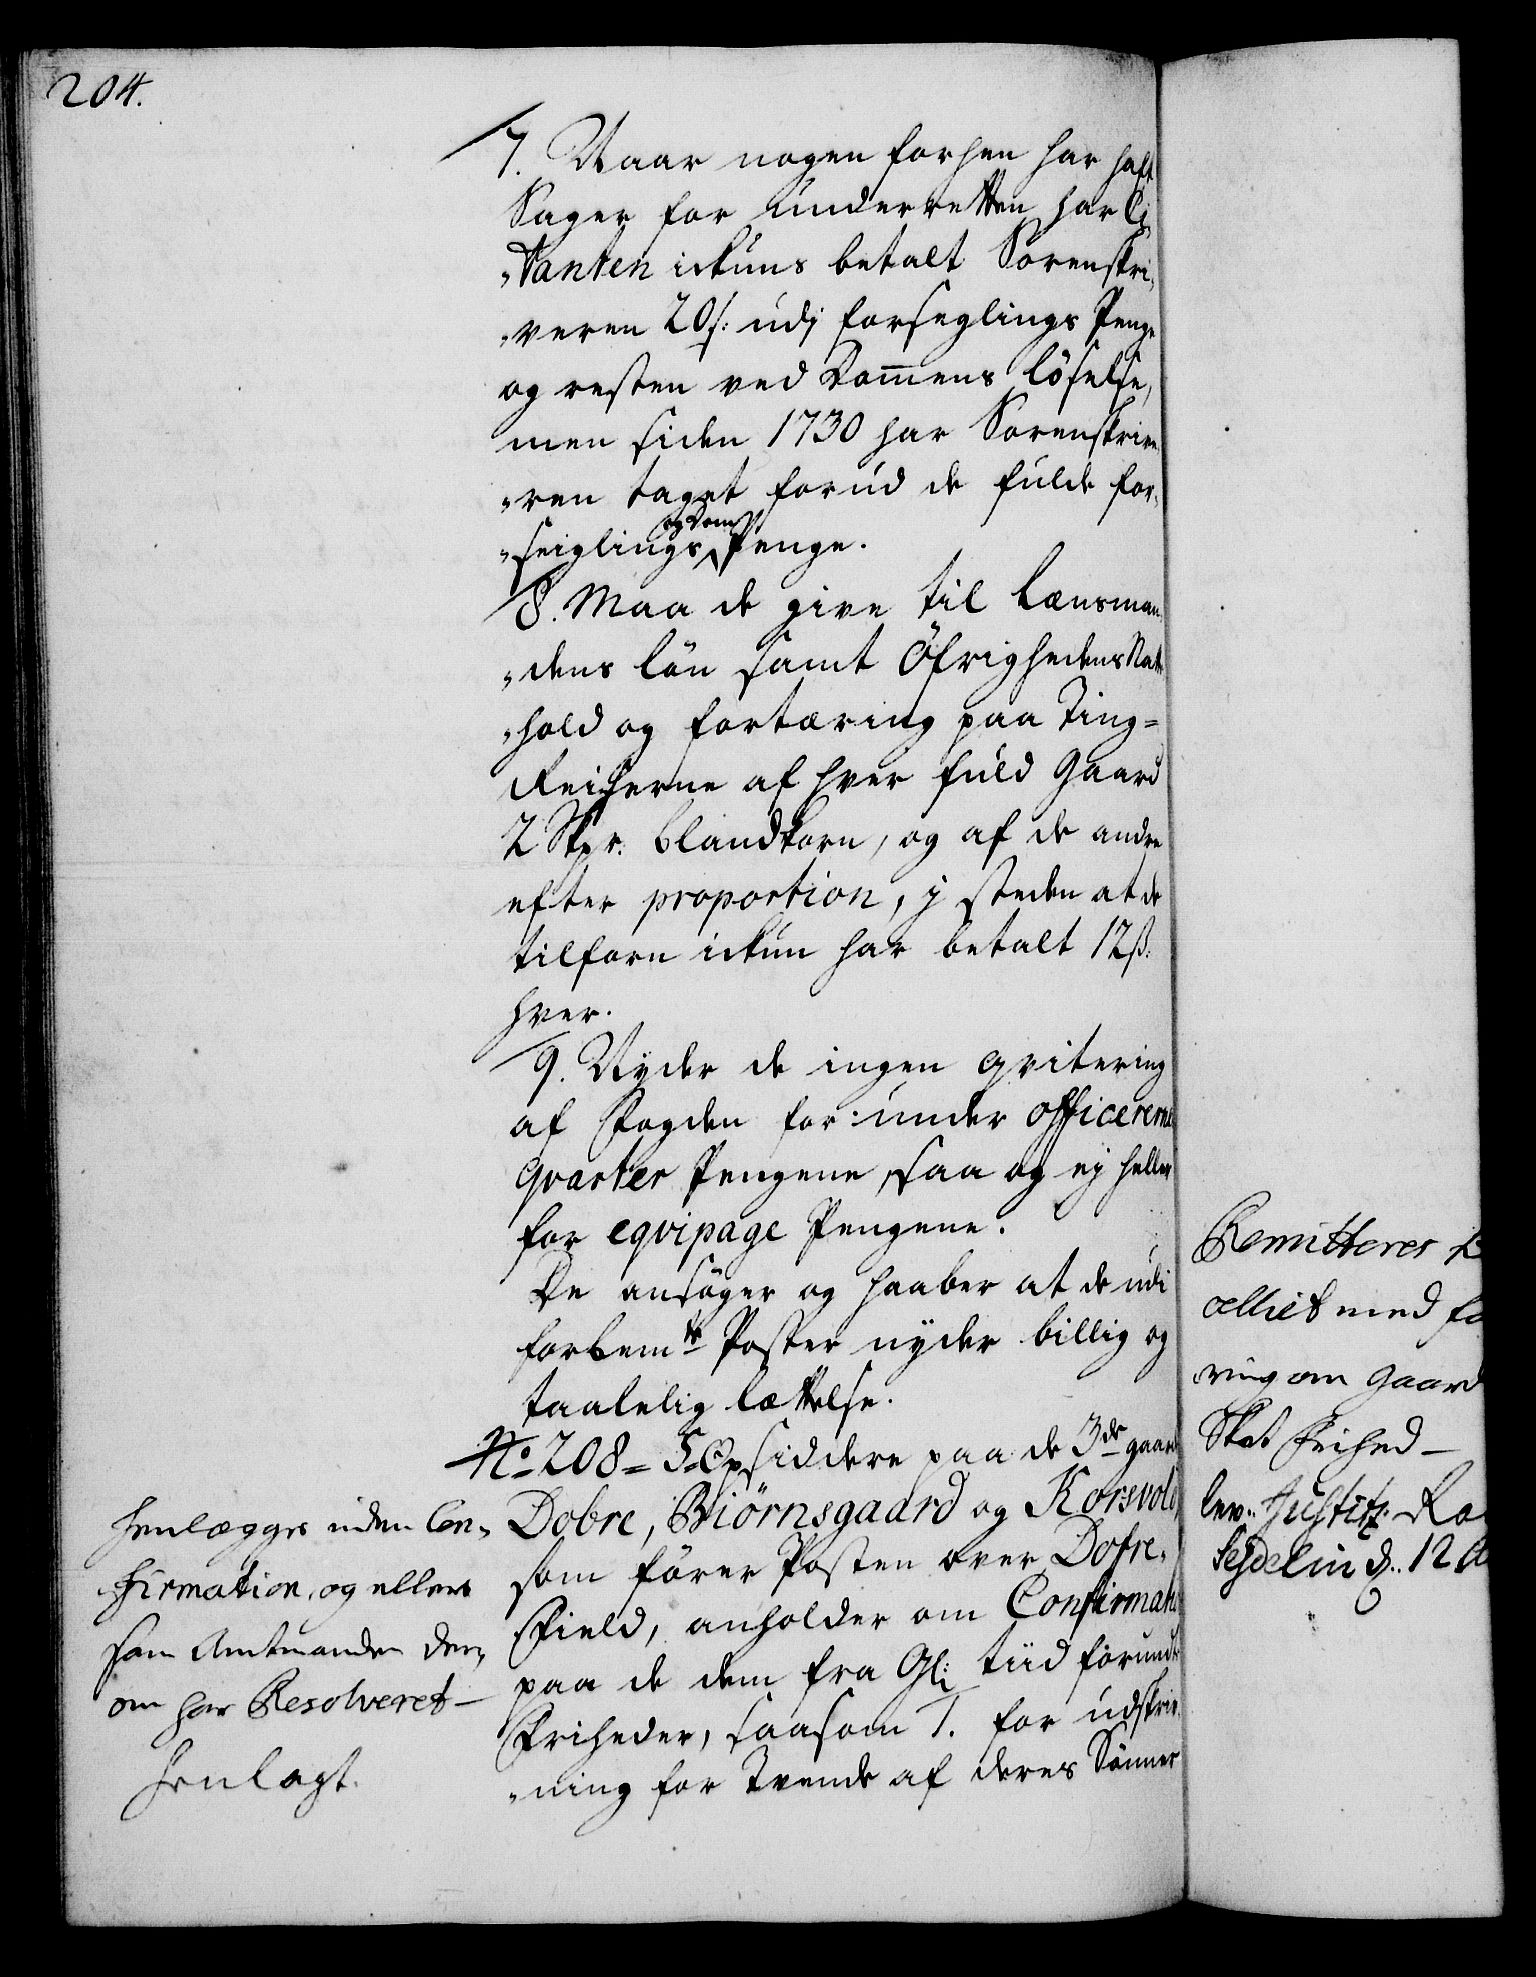 204.
7. Naar nogen forhen har haft
Sager for underretten har Ci„
„tanten ickuns betalt Sorenskri„
„veren 20 s: udj forseglings Penge
og resten ved Dommens løselse,
men siden 1730 har Sorenskrive„
„ren taget forud de fulde for„
„seiglings og Dom Penge.
8. Maa de give til Lænsman„
„dens løn samt Øfrighedens Natte„
„hold og fortæring paa Ting=
Reiserne af hver fuld Gaard
2 Skpr: blandkorn, og af de andre
efter proportion, j steden at de
tilforn ickun har betalt 12 ß:
hver.
9. Nyder de ingen qvitering
af Fogden for under officerernes
qvarter Pengene, saa og ej heller
for eqvipage Pengene.
De ansøger og haaber at de udi
forbemte Poster nyder billig og
taalelig lættelse.
No 208 = 5 Opsiddere paa de 3de gaarde
Dobre, Biørnsgaard og Korsvold,
som fører Posten over Dofre„
Field, anholder om Confirmation
paa de dem fra Gl: tiid forundte
Friheder, saasom 1. for udskriv„
„ning for Tvende af deres Sønner
Henlægges uden Con„
firmation, og ellers
som Amtmanden der„
om har Resolveret —
Henlagt.
Remitteres
med
ring om Gaard
Skat Frihed —
lev: Justitz Ra
12